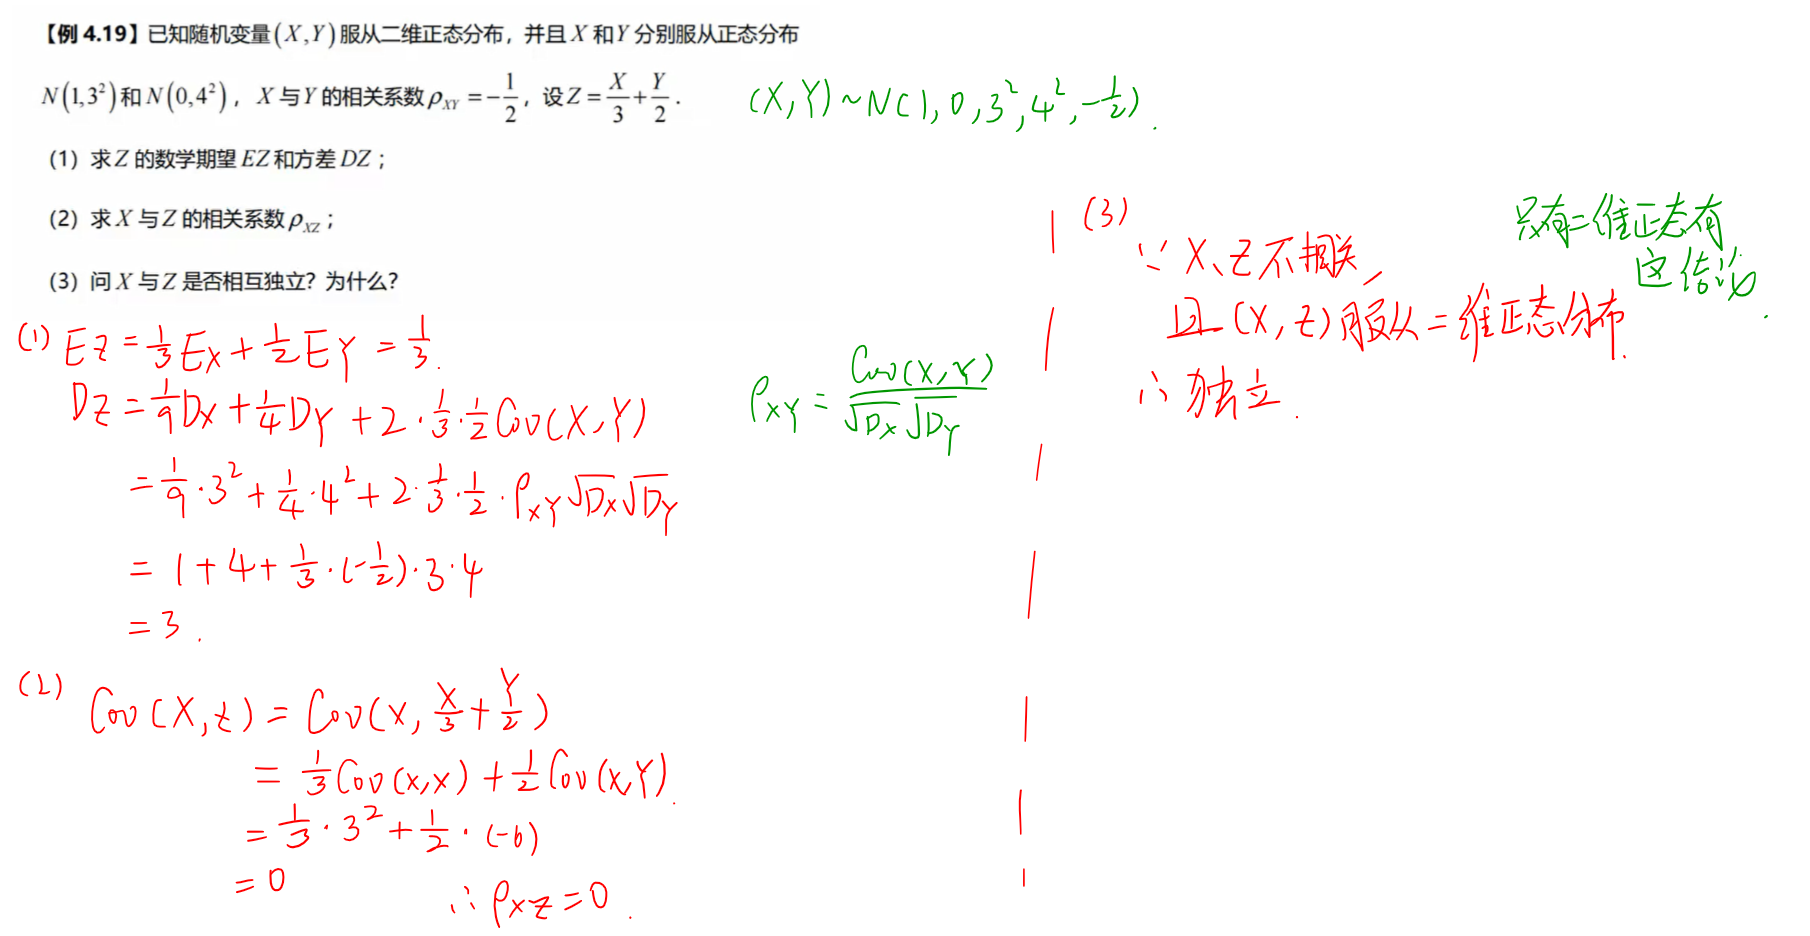 【例 4.19】已知随机变量(X,Y)服从二维正态分布，并且 X 和 Y 分别服从正态分布
N(1,3²)和 N(0,4²)，X 与 Y 的相关系数 ρ_XY = -1/2，设 Z = X/3 + Y/2.
(1) 求 Z 的数学期望 EZ 和方差 DZ；
(2) 求 X 与 Z 的相关系数 ρ_XZ；
(3) 问 X 与 Z 是否相互独立？为什么？
(X,Y)~N(1,0,3²,4²,-1/2).
(1) EZ = 1/3 EX + 1/2 EY = 1/3.
DZ = 1/9 DX + 1/4 DY + 2·1/3·1/2 Cov(X,Y)
= 1/9·3² + 1/4·4² + 2·1/3·1/2·ρ_XY √DX √DY
= 1+4+1/3·(-1/2)·3·4
= 3.
ρ_XY = Cov(X,Y) / √DX √DY
(2) Cov(X,Z) = Cov(X, X/3 + Y/2)
= 1/3 Cov(X,X) + 1/2 Cov(X,Y).
= 1/3·3² + 1/2·(-6)
= 0
∴ ρ_XZ = 0.
(3)
∵ X、Z 不相关,
且 (X,Z) 服从二维正态分布.
∴ 独立.
只有二维正态有
这结论.